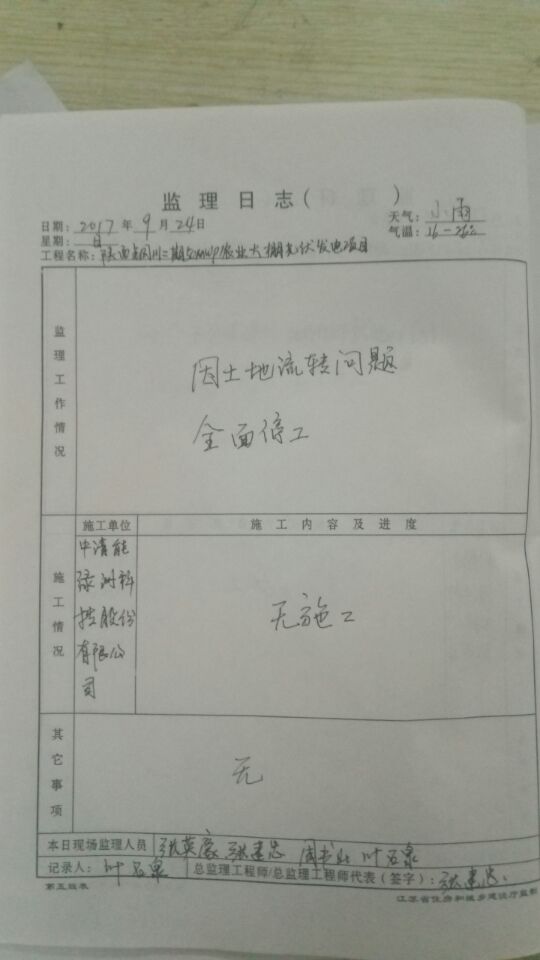 监理日志( )
日期: 2017 年 9 月 24 日
天气: 小雨
星期: 日
气温: 16-26℃
工程名称: 陕西 二期50MWp农业大棚光伏发电项目
监理工作情况
因土地流转问题
全面停工
施工情况
施工单位
施工内容及进度
中清能
绿洲科
技股份
有限公
司
无施工
其它事项
无
本日现场监理人员 张英豪 张建忠 叶石泉
记录人: 叶石泉 总监理工程师/总监理工程师代表(签字): 张建忠
第五版表
江苏省住房和城乡建设厅监制